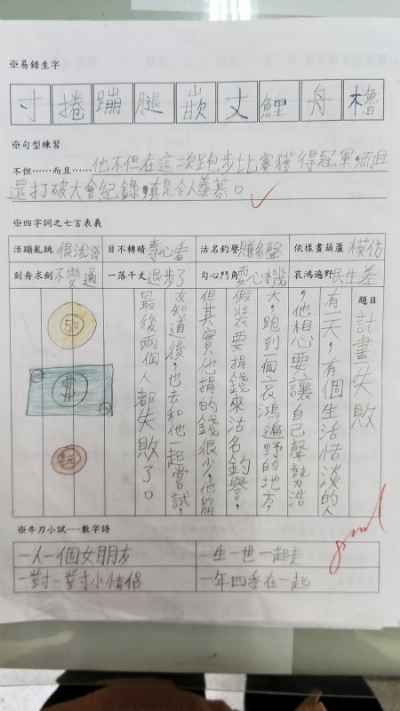 ※易錯生字
寸 捲 蹦 腿 嵌 丈 鯉 舟 櫓
※句型練習
不但……而且……他不但在這次跑步比賽獲得冠軍,而且
還打破大會紀錄,真是令人羨慕。
※四字詞之七言表義
活蹦亂跳 目不轉睛 專心看 沽名釣譽 依樣畫葫蘆 模仿
刻舟求劍 不變通 一落千丈 退步了 勾心鬥角 哀鴻遍野 民生差
題目 計畫失敗
有一天,有個生活恬淡的人
,他想要讓自己聲勢浩
大,跑到一個哀鴻遍野的地方,
假裝要捐錢來沽名釣譽,
但其實他捐的錢很少,他的
知道後,也去和他一起嘗試,
最後兩個人都失敗了。
※牛刀小試---數字詩
一人一個女朋友
一生一世一起走
一對一對小情侶
一年四季在一起